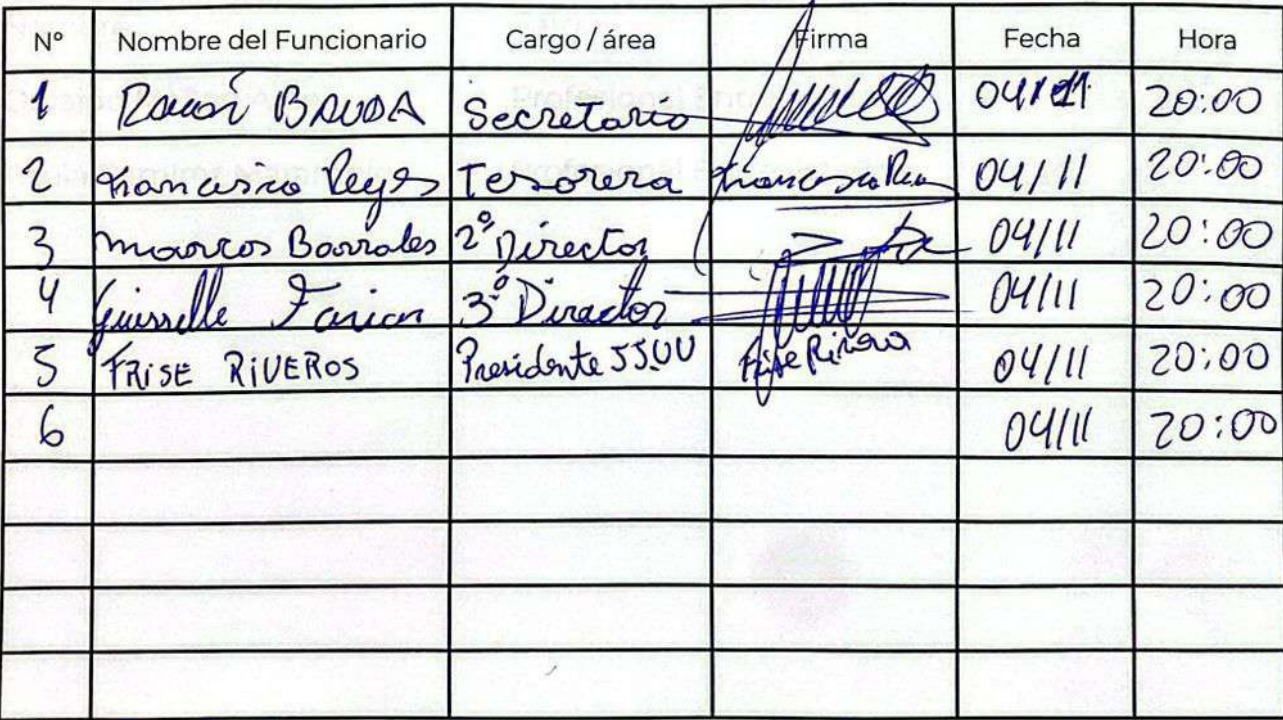 N° Nombre del Funcionario Cargo / área Firma Fecha Hora
1 BAUDA Secretario 04/11 20:00
2 Francisca Reyes Tesorera Francisca 04/11 20:00
3 Marcos Barrales 2° Director 04/11 20:00
4 Guisselle Farias 3° Director 04/11 20:00
5 FRISE RIVEROS Presidente JJ.VV Frise Riveros 04/11 20:00
6 04/11 20:00